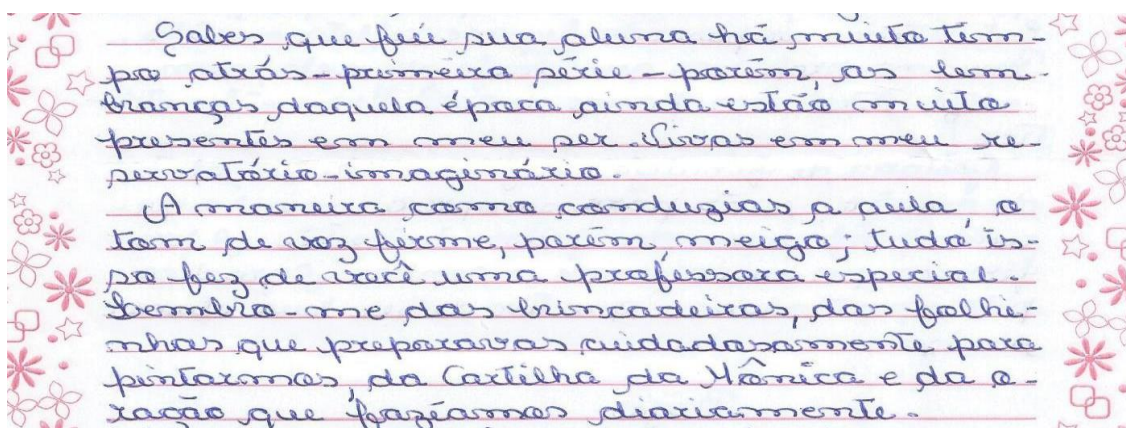 Sabes que fui sua aluna há muito tem-
po atrás - primeira série - porém, as lem-
branças daquela época ainda estão muito
presentes em meu ser. Vivas em meu re-
servatório-imaginário.
A maneira como conduzias a aula, o
tom de voz firme, porém meigo; tudo is-
so fez de você uma professora especial.
Lembro-me das brincadeiras, das folhi-
nhas que preparavas cuidadosamente para
pintarmos, da Cartilha da Mônica e da o-
ração que fazíamos diariamente.